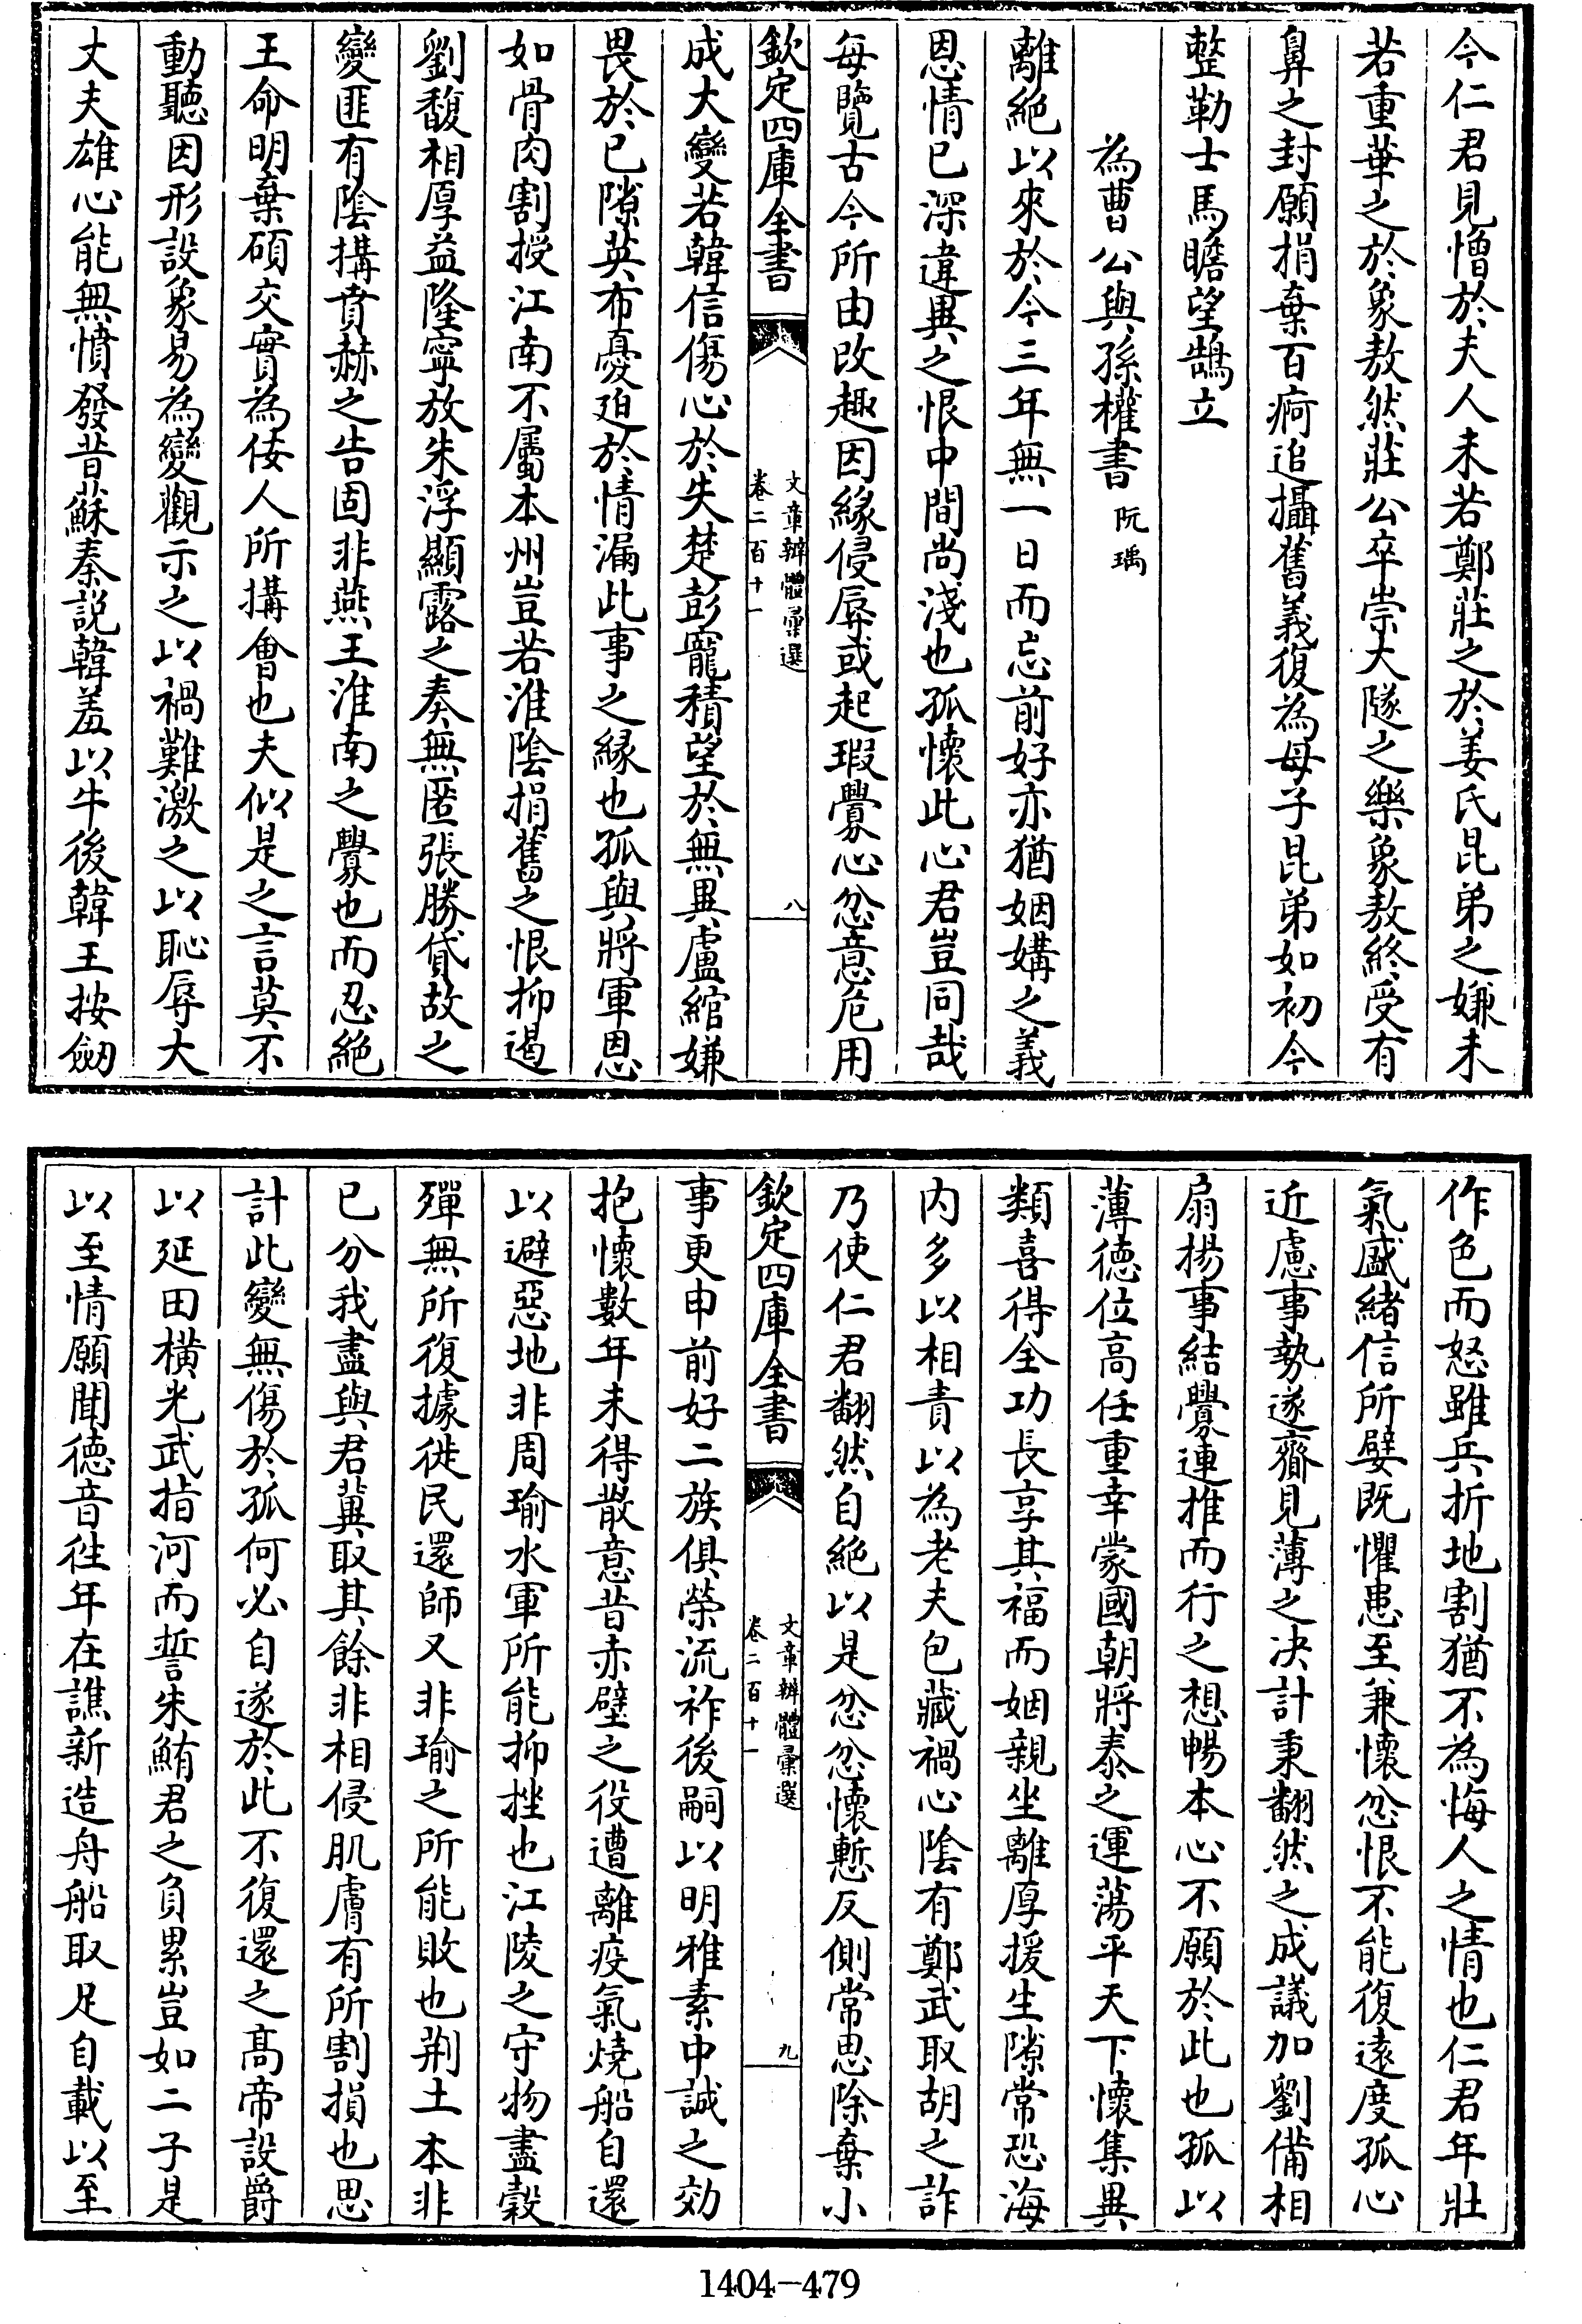 今仁君見憎於夫人未若鄭莊之於姜氏昆弟之嫌未
若重華之於象敖然莊公卒崇大隧之樂象敖終受有
鼻之封願捐棄百痾追攝舊義復為母子昆弟如初今
整勒士馬瞻望鵠立
為曹公與孫權書 阮瑀
離絶以來於今三年無一日而忘前好亦猶姻媾之義
恩情已深違異之恨中間尚淺也孤懷此心君豈同哉
每覽古今所由改趣因緣侵辱或起瑕釁心忿意危用
欽定四庫全書
文章辨體彚選
卷二百十一
八
成大變若韓信傷心於失楚彭寵積望於無異盧綰嫌
畏於已隙英布憂廹於情漏此事之緣也孤與將軍恩
如骨肉割授江南不屬本州豈若淮陰捐舊之恨抑遏
劉馥相厚益隆寧放朱浮顯露之奏無匿張勝貸故之
變匪有陰搆賁赫之告固非燕王淮南之釁也而忍絶
王命明棄碩交實為佞人所搆會也夫似是之言莫不
動聽因形設象易為變觀示之以禍難激之以恥辱大
丈夫雄心能無憤發昔蘇秦説韓羞以牛後韓王按劒
作色而怒雖兵折地割猶不為悔人之情也仁君年壯
氣盛緒信所嬖既懼患至兼懷忿恨不能復遠度孤心
近慮事勢遂齎見薄之决計秉翻然之成議加劉備相
扇揚事結釁連推而行之想暢本心不願於此也孤以
薄德位高任重幸蒙國朝將泰之運蕩平天下懷集異
類喜得全功長享其福而姻親坐離厚援生隙常恐海
内多以相責以為老夫包藏禍心陰有鄭武取胡之詐
乃使仁君翻然自絶以是忿忿懷慙反側常思除棄小
欽定四庫全書
文章辨體彚選
卷二百十一
九
事更申前好二族俱榮流祚後嗣以明雅素中誠之効
抱懷數年未得散意昔赤壁之役遭離疫氣燒船自還
以避惡地非周瑜水軍所能抑挫也江陵之守物盡穀
殫無所復據徙民還師又非瑜之所能敗也荆土本非
已分我盡與君冀取其餘非相侵肌膚有所割損也思
計此變無傷於孤何必自遂於此不復還之高帝設爵
以延田橫光武指河而誓朱鮪君之負累豈如二子是
以至情願聞德音往年在譙新造舟船取足自載以至
1404-479